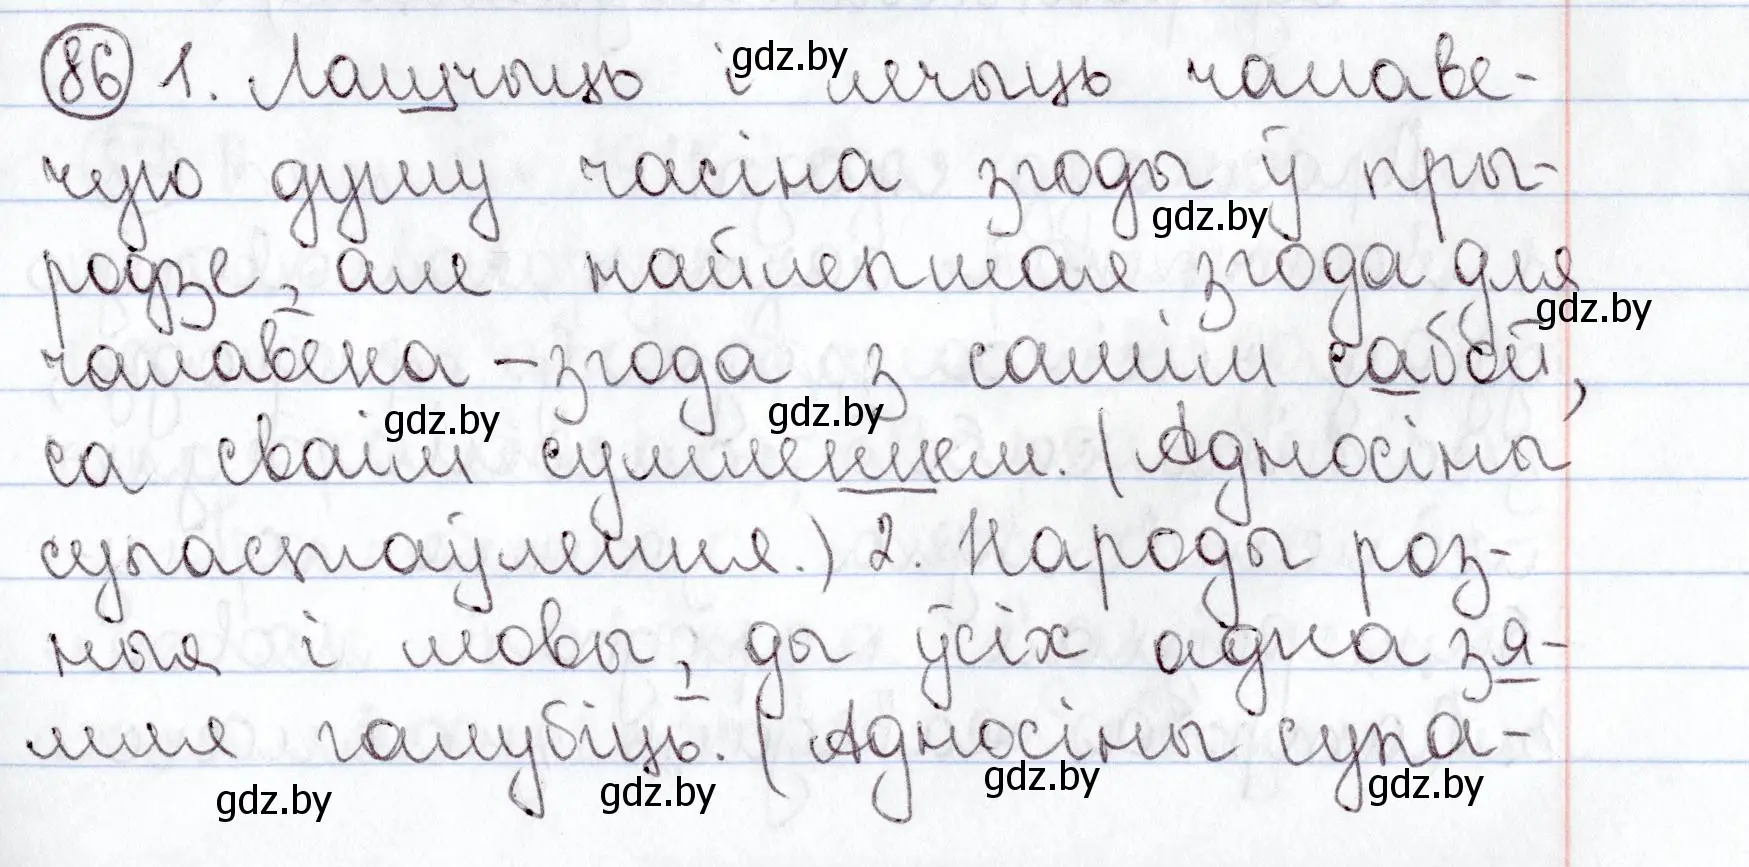 86 1. Лашчыць і лечыць чалаве-
чую душу часіна згоды ў пры-
родзе, але найлепшая згода для
чалавека – згода з самім сабой,
са сваім сумленнем. (Адносіны
супастаўлення.) 2. Народы роз-
ныя і мовы, ды ўсіх адна зя-
мля галубіць. (Адносіны супа-
gdz.by
gdz.by
gdz.by
gdz.by
gdz.by
gdz.by
gdz.by
gdz.by
gdz.by